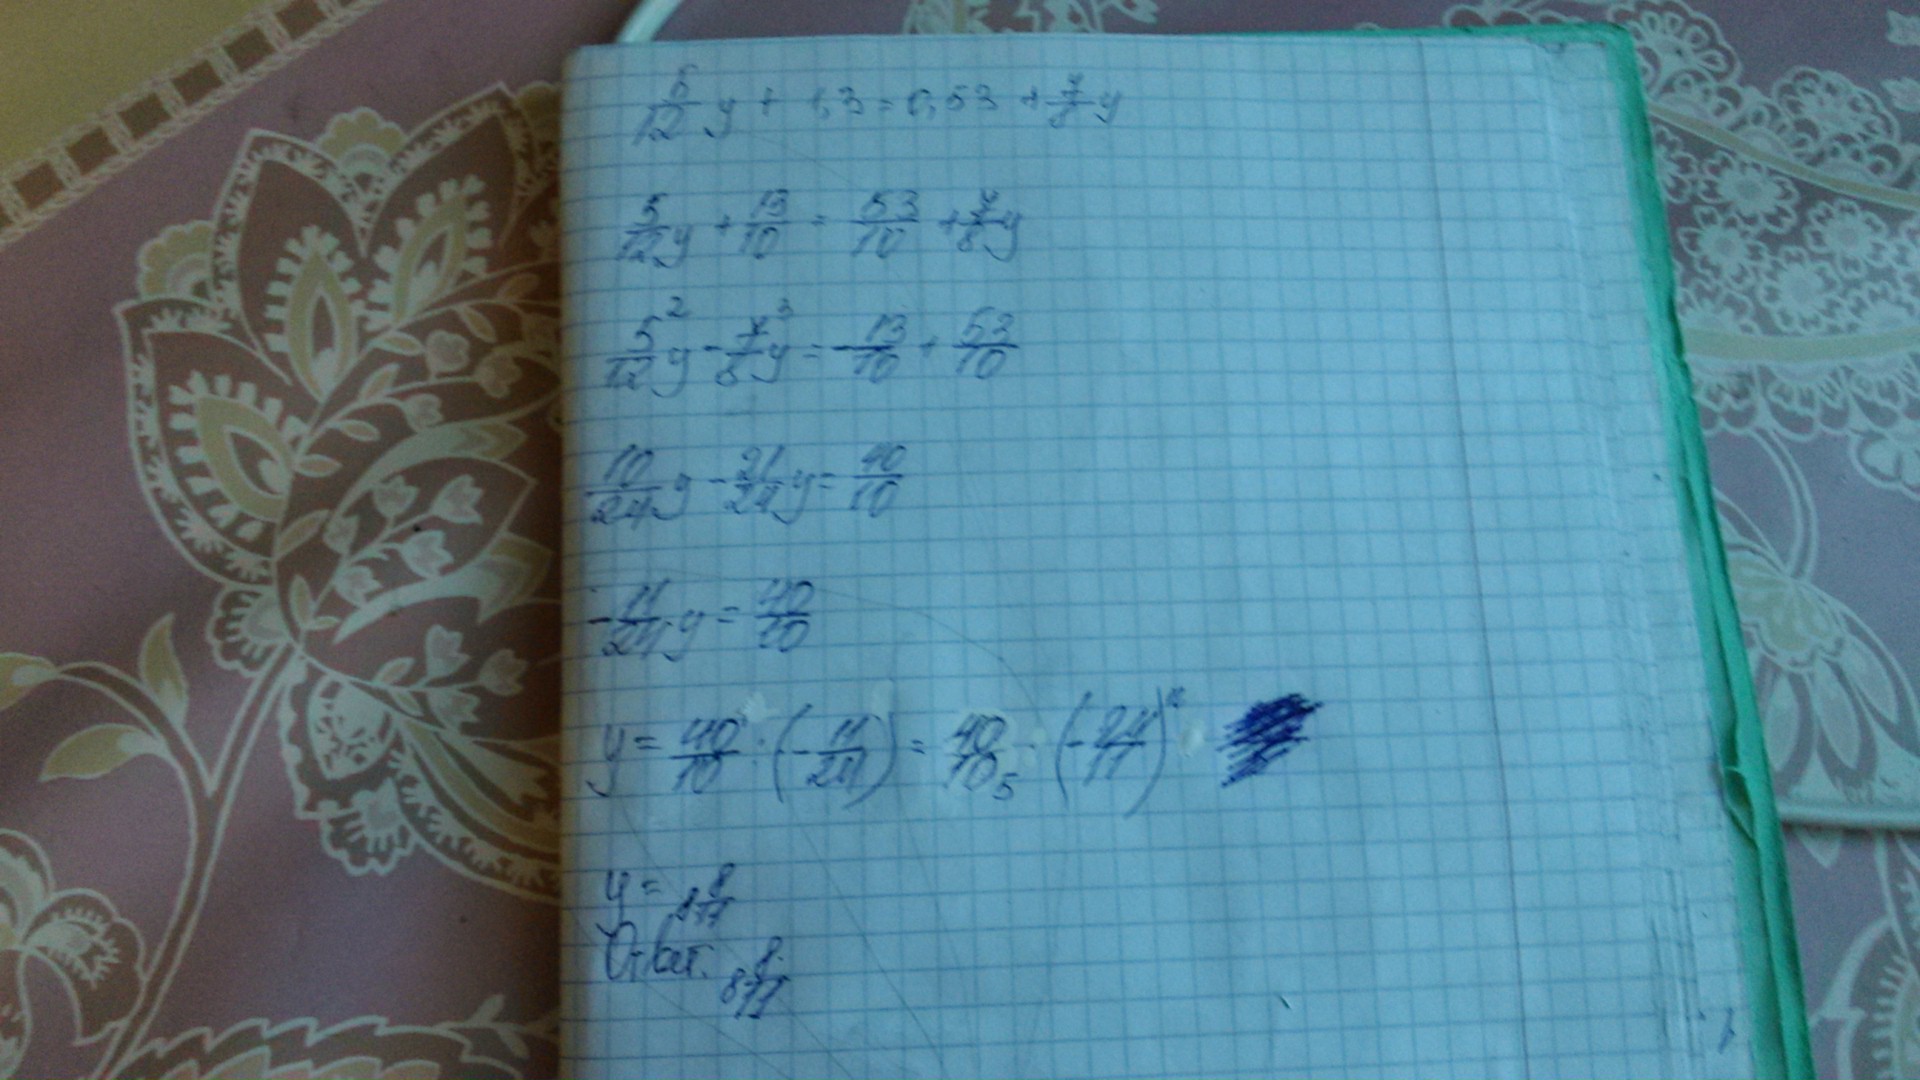 5/12 y + 1,3 = 0,53 + 7/8 y
5/12 y + 13/10 = 53/10 + 7/8 y
5²/12 y - 7³/8 y = - 13/10 + 53/10
10/24 y - 21/24 y = 40/10
- 11/24 y = 40/10
y = 40/10 : (- 11/24) = 40/10₅ · (- 24/11)
y = 8 8/11
Ответ. 8 8/11